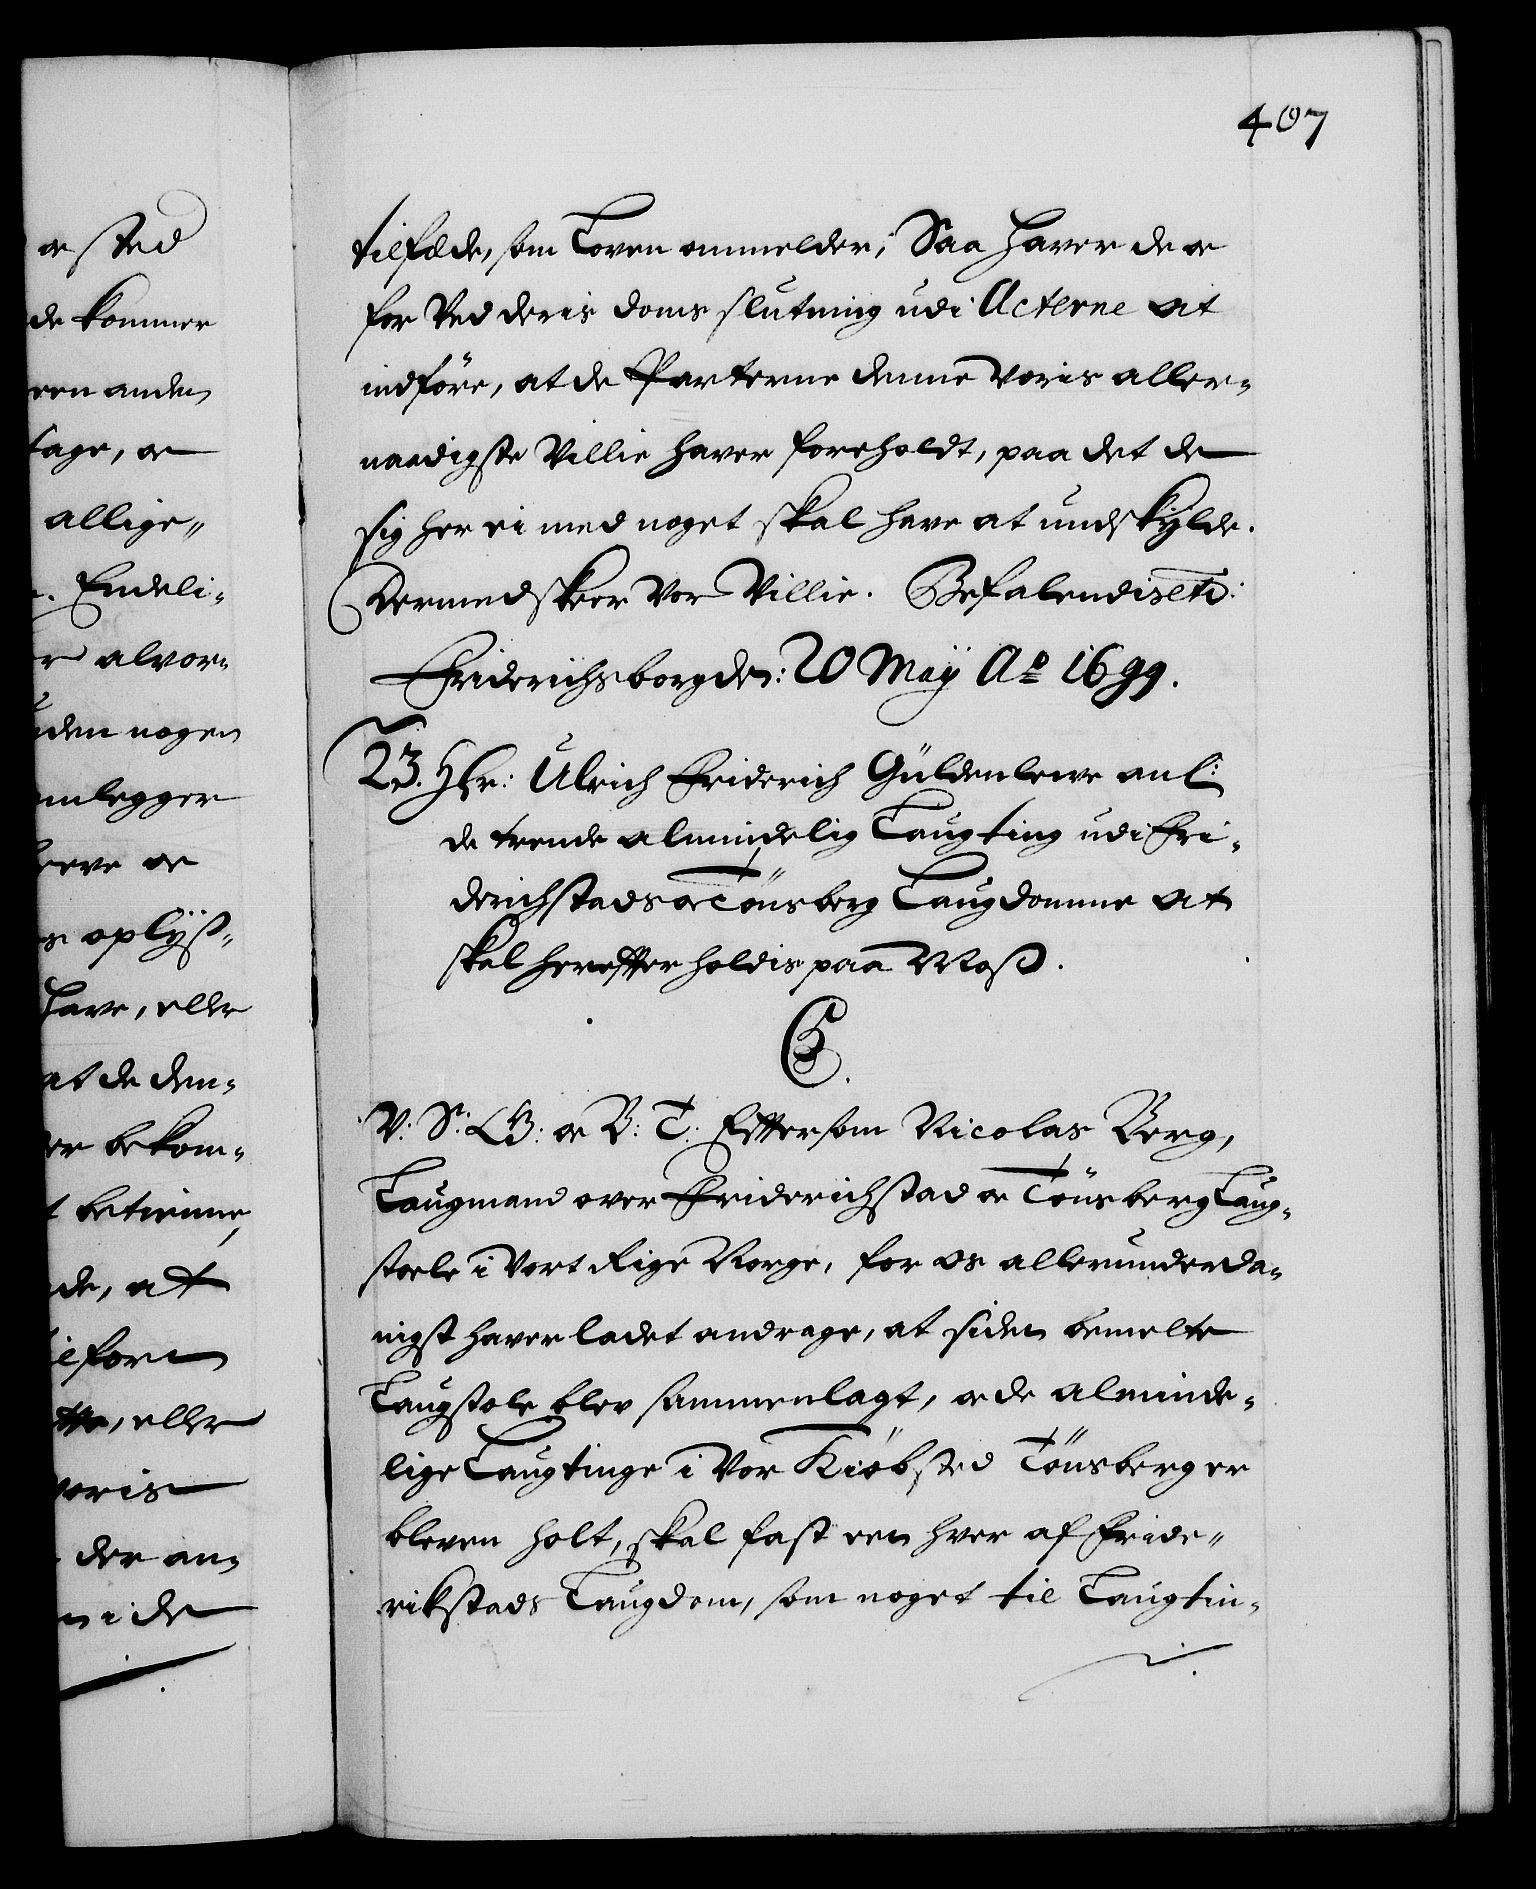 407
tilfælde, som Loven ommelder; Saa haver de oc
for Ved deris doms slutning udi Acterne at
indføre, at de Parterne denne Voris aller-
naadigste Villie haver foreholdt, paa det de
sig her ei med noget skal have at undskÿlde.
Dermed skeer Vor Villie. Befalendis etc:
Friderichsborg den: 20 Maÿ Ao 1699.
23. Hr: Ulrich Friderich Güldenlewe anl:
de trende almindelig Laugting udi Fri-
derichstads oc Tönsberg Laugdomme at
skal herefter holdis paa Moss.
C5.
V: S: G: oc B: T: Eftersom Nicolas Berg,
Laugmand over Friderichstad oc Tönsberg Laug-
stoele i Vort Rige Norge, for os allerunderda-
nigst haver ladet andrage, at siden bemelte
Laugstole blev sammenlagt, oc de alminde-
lige Laugtinge i Vor Kiöbsted Tönsberg er
bleven holt, skal fast een hver af Fride-
rikstads Laugdom, som noget til Laugtin-
oc sted
de kommer
een anden
tage, oc
allige-
Endeli-
alvor-
uden nogen
oc
oplÿs-
have, eller
at de den-
bekom-
betienne,
de, at
eller
voris
der an-
i de